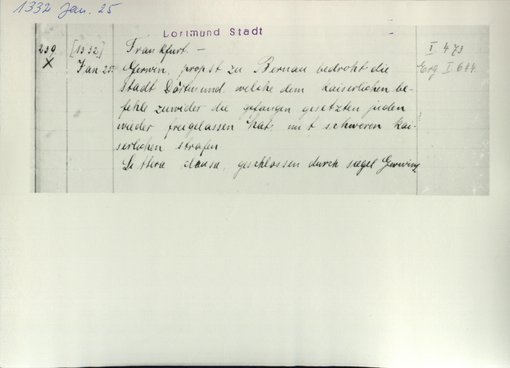 1332 Jan. 25
Dortmund Stadt
239 [1332] Frankfurt. – I 473
X Jan 25. Gerwin, propst zu Bernau bedroht die Erg. I 644
Stadt Dortmund, welche dem kaiserlichen be-
fehle zuwider die gefangen gesetzten juden
wieder freigelassen hat, mit schweren kai-
serlichen strafen
Littera clausa, geschlossen durch siegel Gerwins